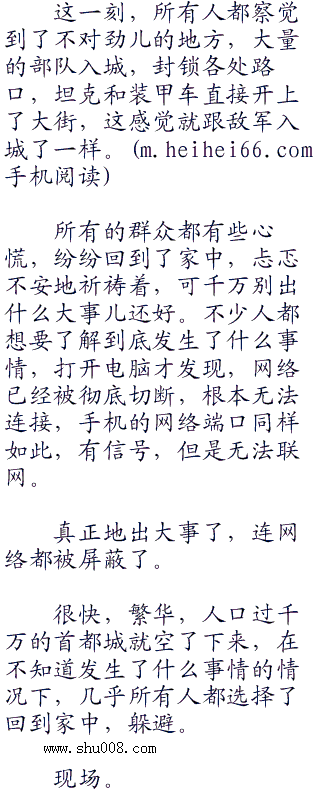 这一刻，所有人都察觉
到了不对劲儿的地方，大量
的部队入城，封锁各处路
口，坦克和装甲车直接开上
了大街，这感觉就跟敌军入
城了一样。(m.heihei66.com
手机阅读)
所有的群众都有些心
慌，纷纷回到了家中，忐忑
不安地祈祷着，可千万别出
什么大事儿还好。不少人都
想要了解到底发生了什么事
情，打开电脑才发现，网络
已经被彻底切断，根本无法
连接，手机的网络端口同样
如此，有信号，但是无法联
网。
真正地出大事了，连网
络都被屏蔽了。
很快，繁华，人口过千
万的首都城就空了下来，在
不知道发生了什么事情的情
况下，几乎所有人都选择了
回到家中，躲避。
www.shu008.com
现场。